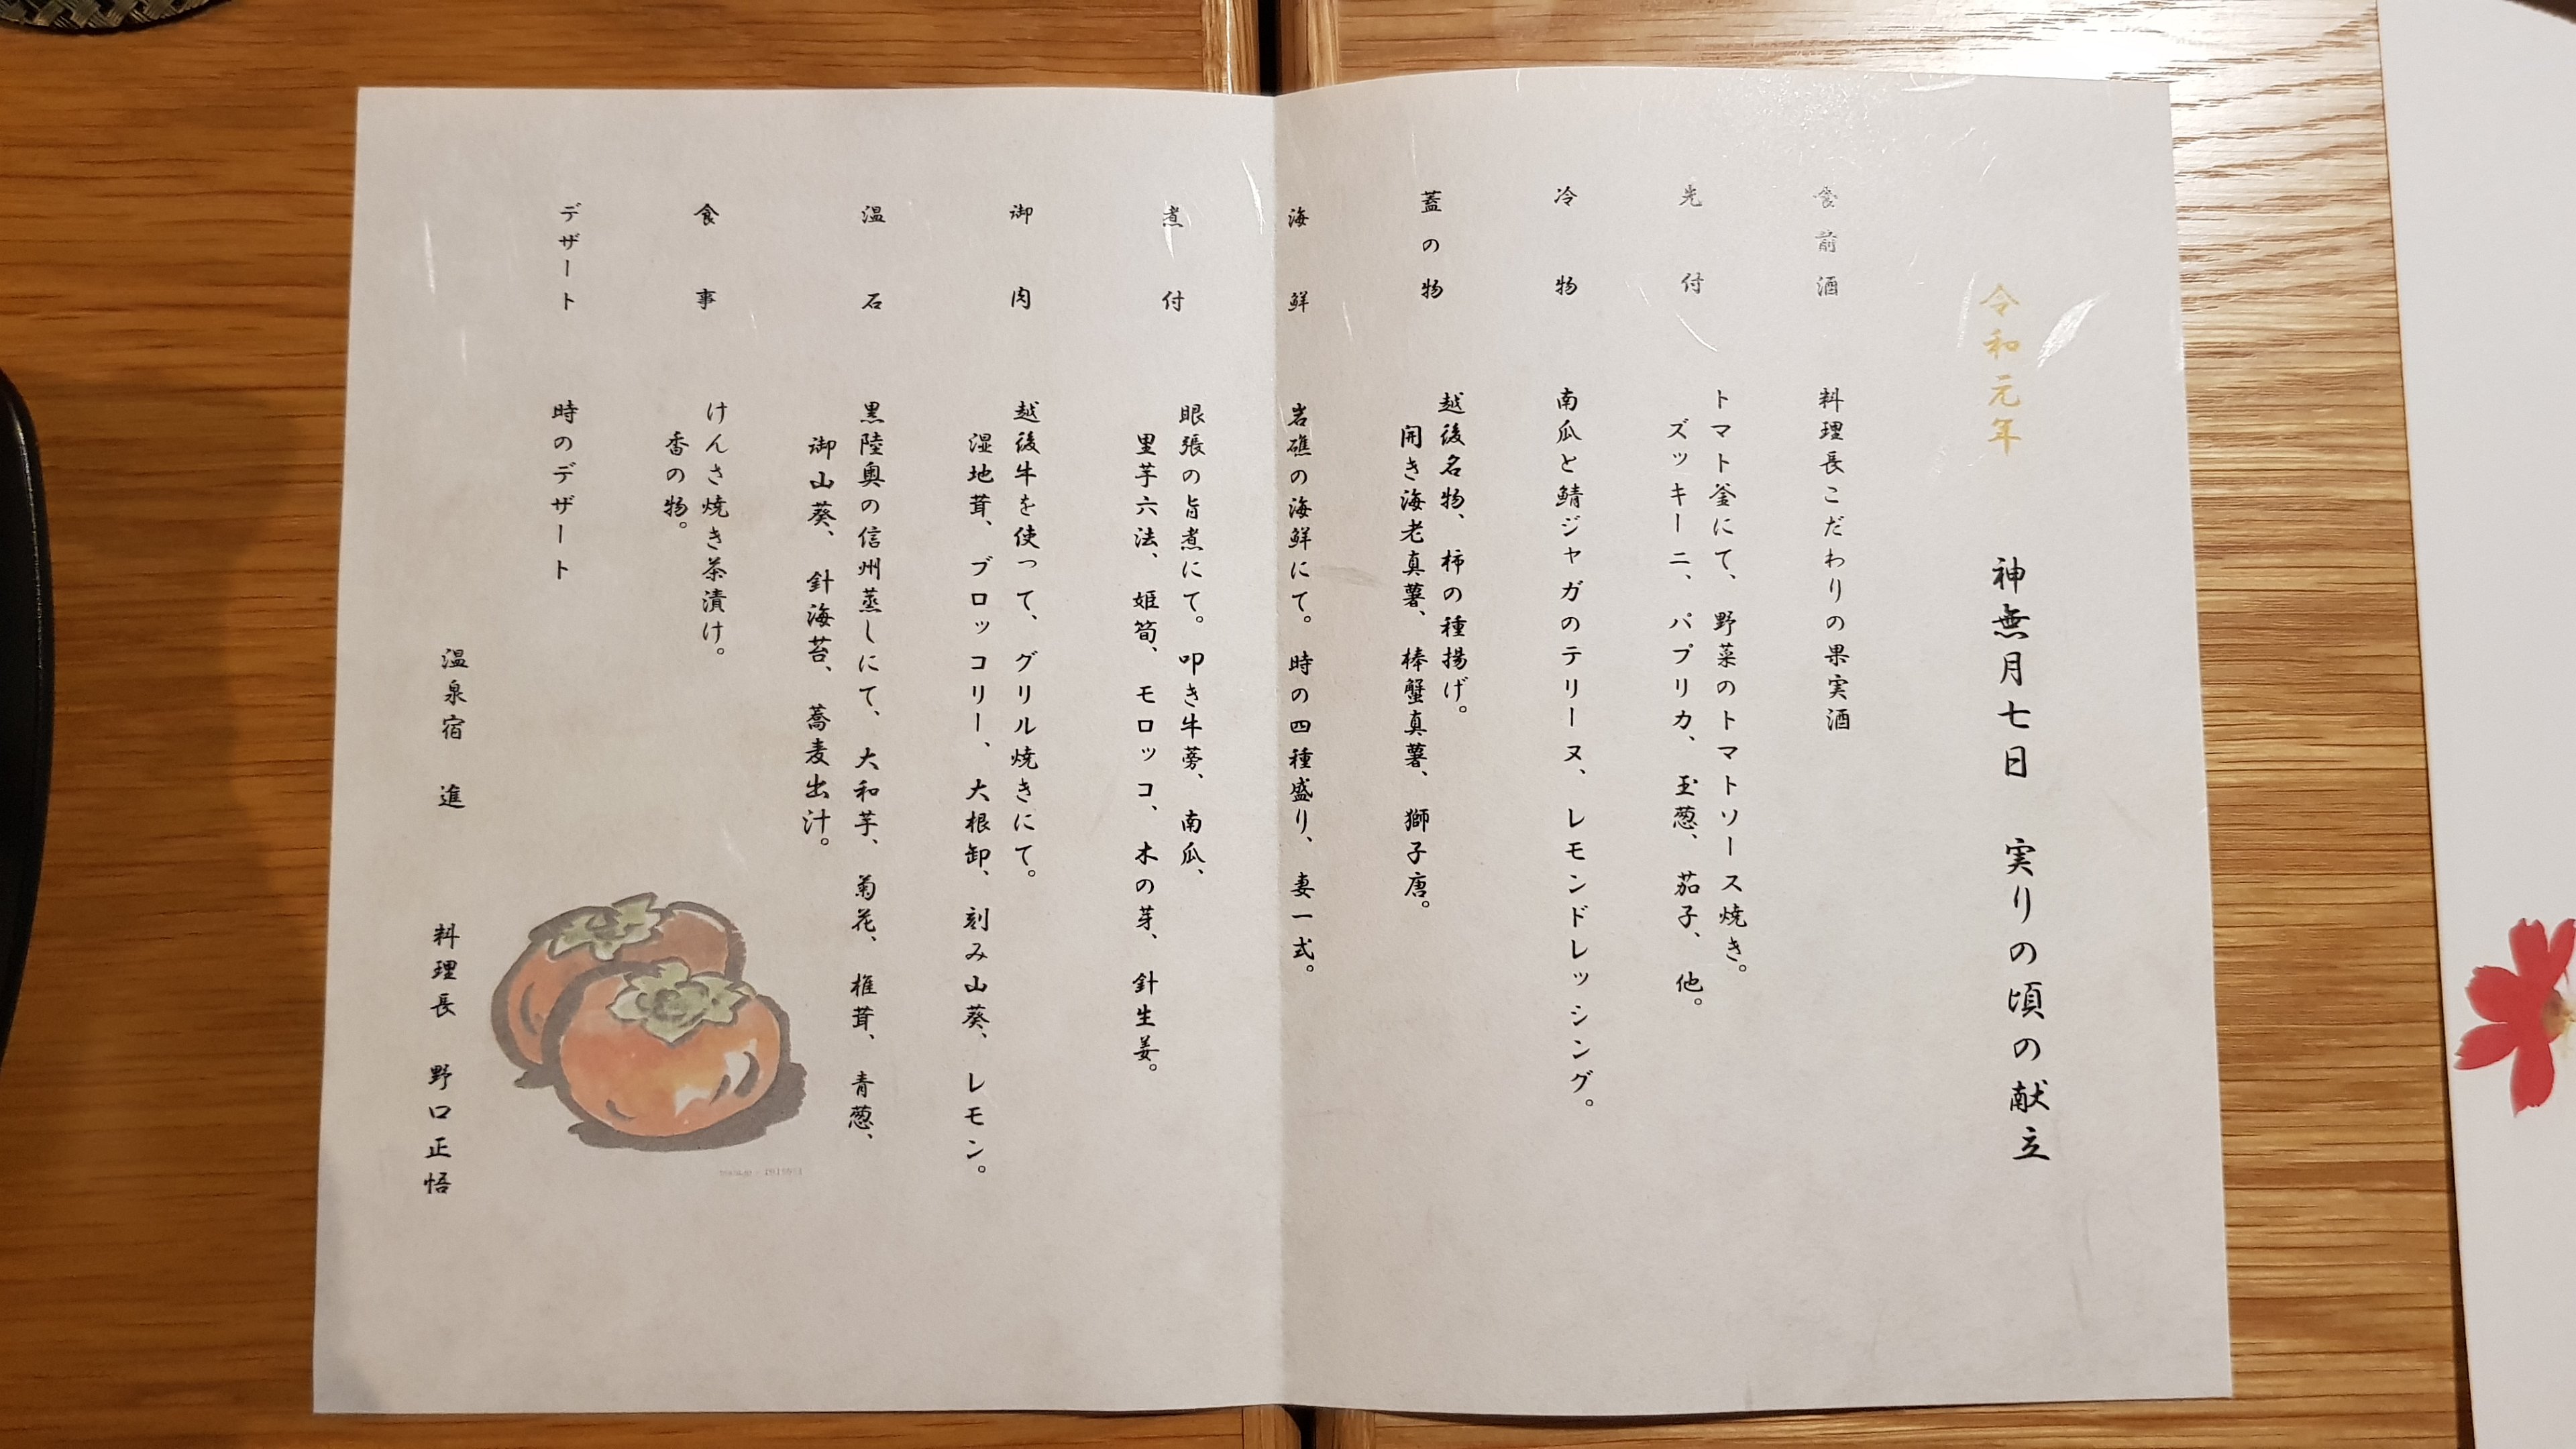 令和元年 神無月七日 実りの頃の献立
食前酒 料理長こだわりの果実酒
先付 トマト釜にて、野菜のトマトソース焼き。
ズッキーニ、パプリカ、玉葱、茄子、他。
冷物 南瓜と鯖ジャガのテリーヌ、レモンドレッシング。
蓋の物 越後名物、柿の種揚げ。
開き海老真薯、棒蟹真薯、獅子唐。
海鮮 岩礁の海鮮にて。時の四種盛り、妻一式。
煮付 眼張の旨煮にて。叩き牛蒡、南瓜、
里芋六法、姫筍、モロッコ、木の芽、針生姜。
御肉 越後牛を使って、グリル焼きにて。
湿地茸、ブロッコリー、大根卸、刻み山葵、レモン。
温石 黒陸奥の信州蒸しにて、大和芋、菊花、椎茸、青葱、
御山葵、針海苔、蕎麦出汁。
食事 けんさ焼き茶漬け。
香の物。
デザート 時のデザート
温泉宿 進 料理長 野口正悟